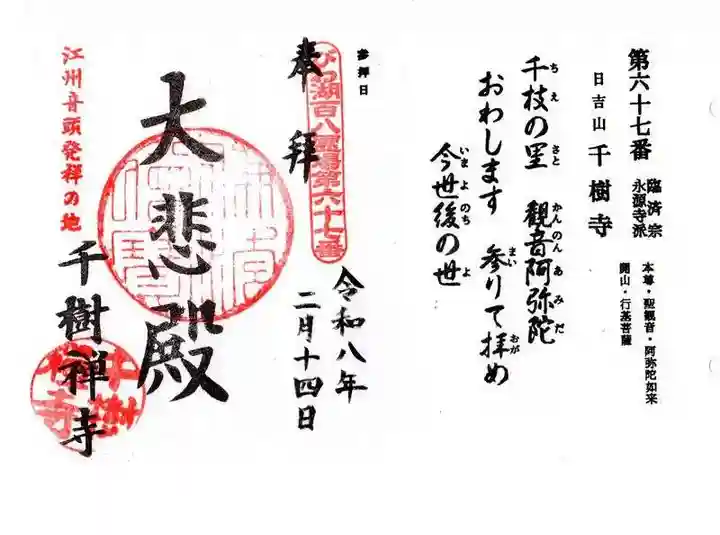 第六十七番
臨済宗
永源寺派
日吉山 千樹寺
本尊・聖観音・阿弥陀如来
開山・行基菩薩
千枝の里 観音阿弥陀
ちえ さと かんのんあみだ
おわします 参りて拝め
まい おが
今世後の世
いまよのち よ
参拝日
奉拝
びわ湖百八霊場第六十七番
令和八年
二月十四日
大悲殿
江州音頭発祥の地
千樹禅寺